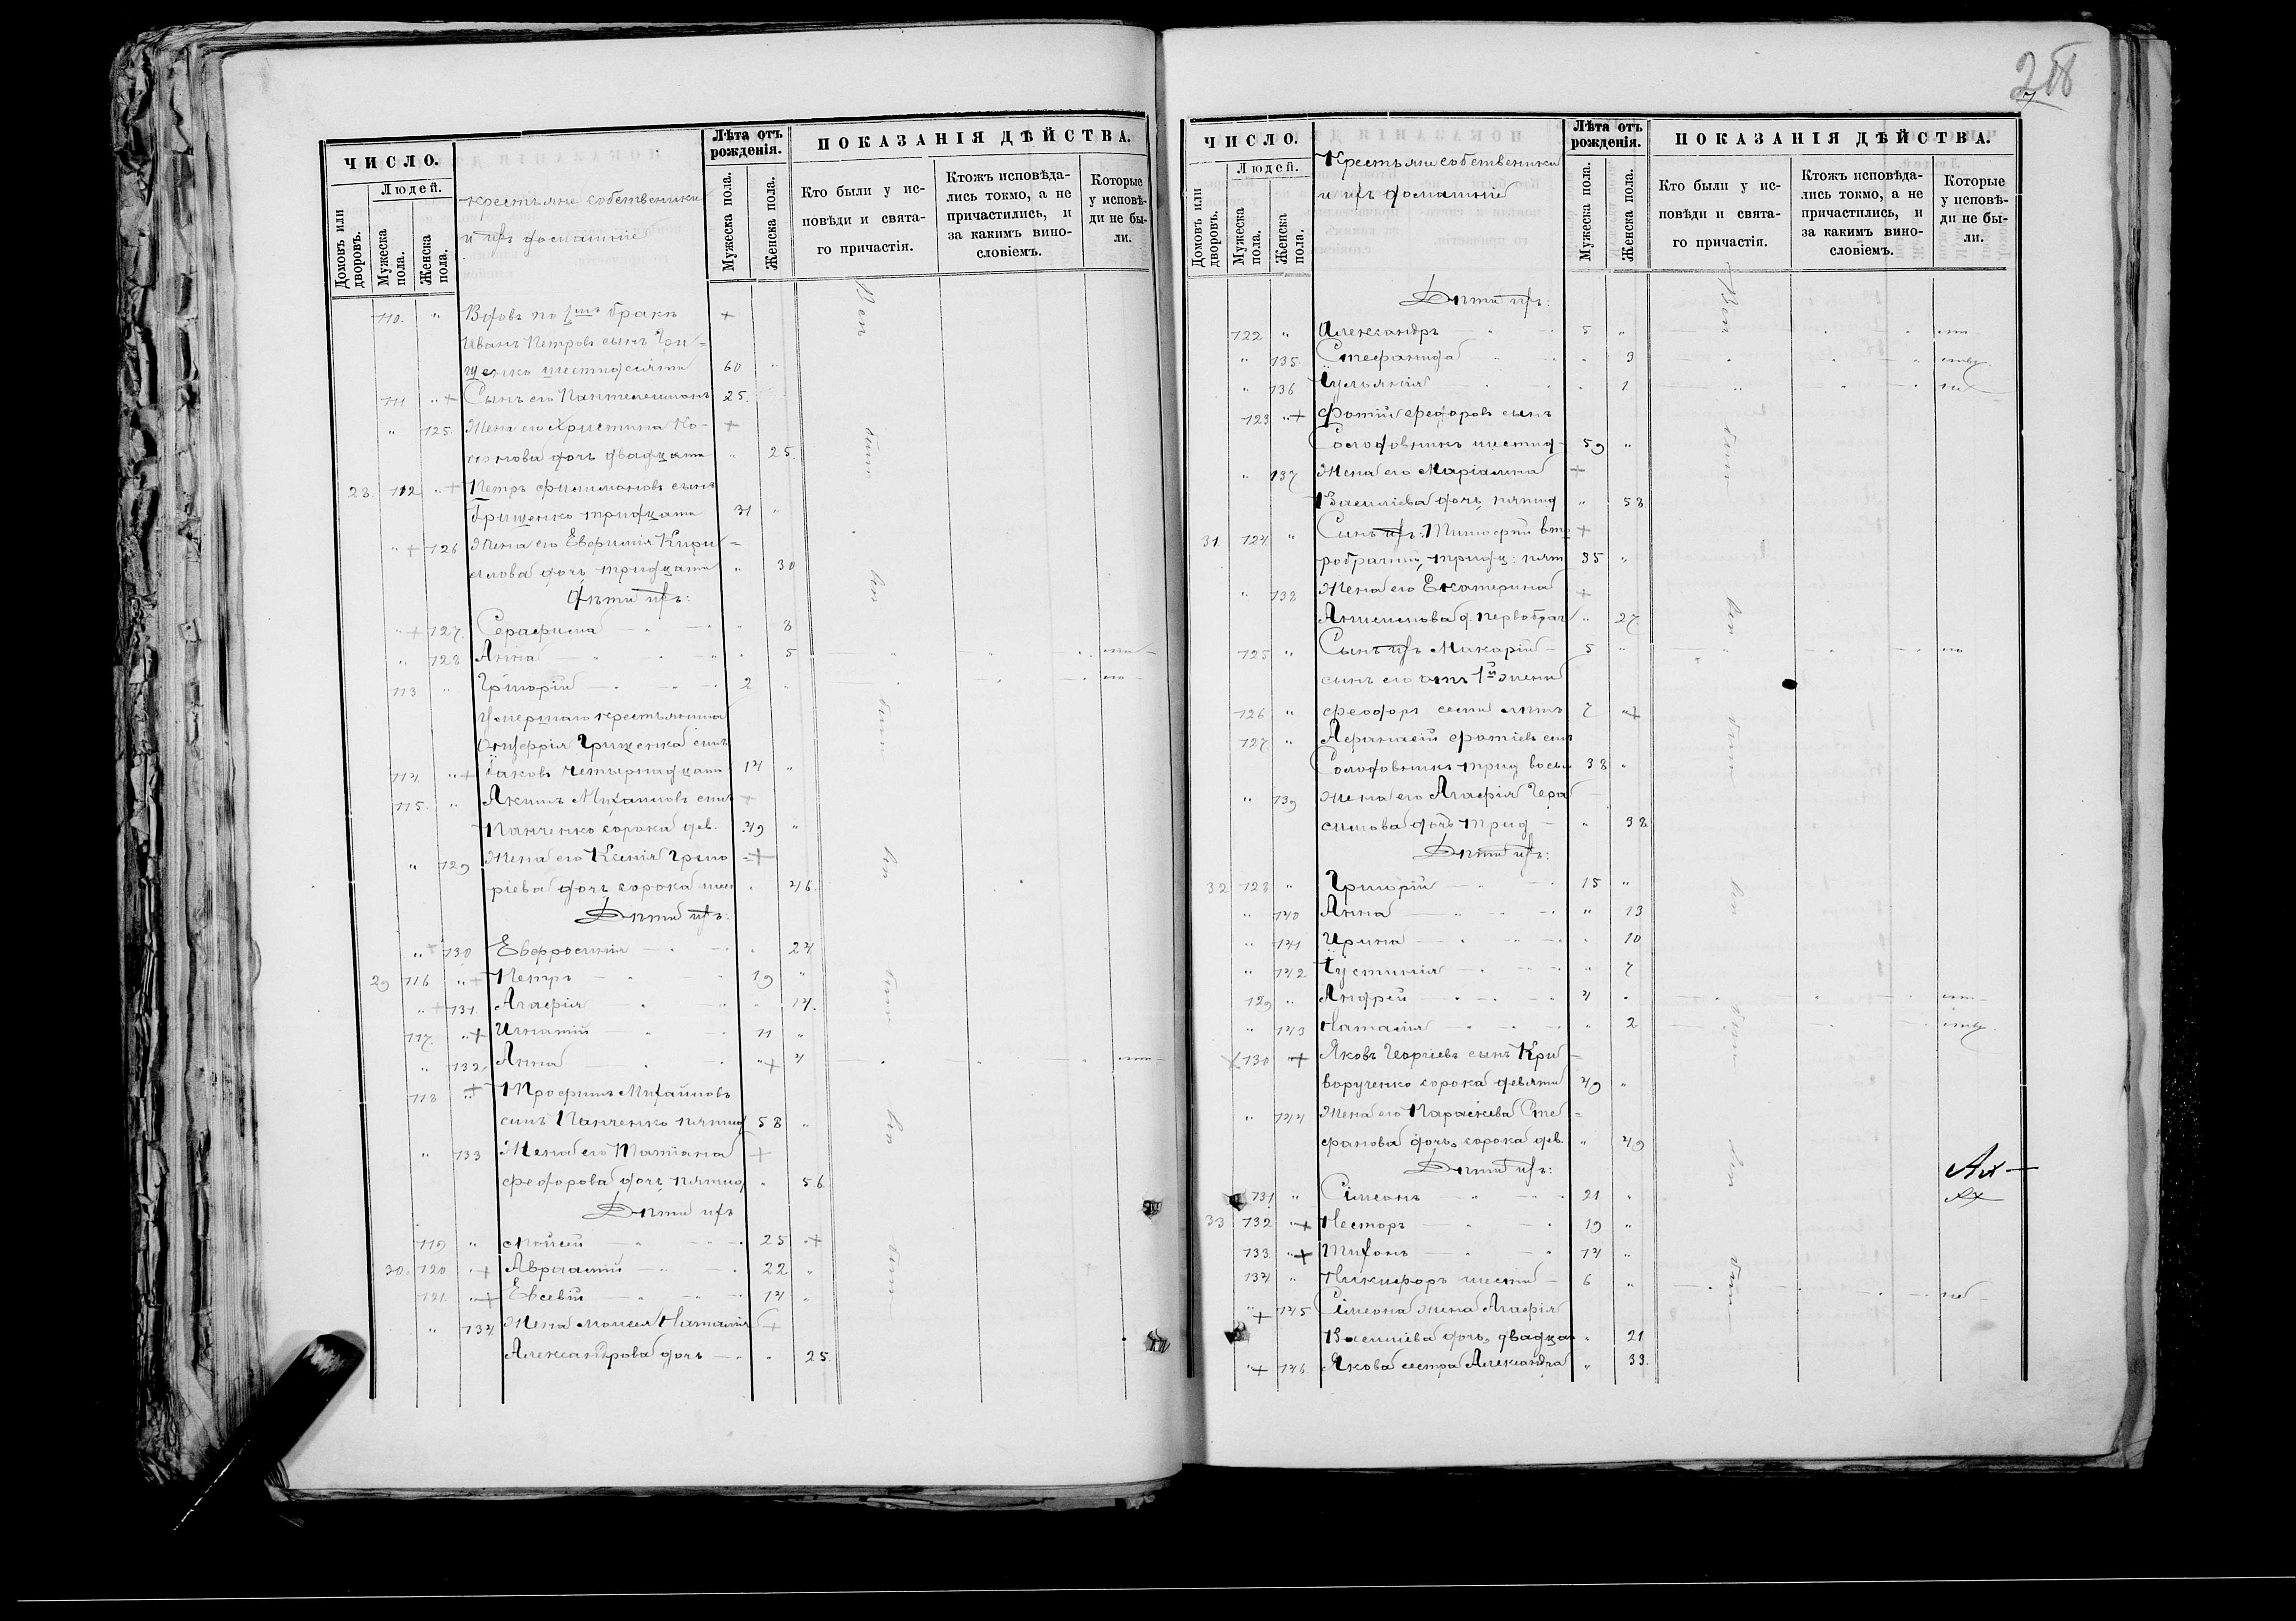 ЧИСЛО.
Людей.
Домовъ или дворовъ.
Мужеска пола.
Женска пола.
крестьяне собственики
и ихъ домашніе
Лѣта отъ рожденія.
Мужеска пола.
Женска пола.
ПОКАЗАНІЯ ДѢЙСТВА.
Кто были у ис-
повѣди и свята-
го причастія.
Ктожъ исповѣда-
лись токмо, а не
причастились, и
за какимъ вино-
словіемъ.
Которые
у исповѣ-
ди не бы-
ли.
110. " Вдовъ по 1мъ бракѣ +
Иванъ Петровъ сынъ Гри-
щенко шестидесяти 60 "
111 " + Сынъ его Пантелеимонъ 25.
" 125. Жена его Христина Ко-
нонова дочь двадцати " 25.
28 112 " + Петръ Филимоновъ сынъ
Грищенко тридцати 31 "
" + 126 Жена его Евфимія Кири-
лова дочь тридцати " 30
Дѣти ихъ:
" + 127. Серафима " 8
" 128 Анна " 5
113 " Григорій 2 "
Умершаго крестьянина
Онуфрія Грищенка сынъ
114 " + Іаковъ четырнадцати 14 "
115. " Акимъ Михаиловъ сынъ +
Панченко сорока дев. 49 "
" 129 Жена его Ксенія Григо-
ріева дочь сорока шес " 46.
Дѣти ихъ:
" + 130 Евфросинія " 24
29 116 " + Петръ 19 "
" + 131. Агафія " 14.
117. " + Игнатій 11 "
" 132, Анна " + 4
118 " + Трофимъ Михаиловъ
сынъ Панченко пятид 58 "
" 133 Жена его Татіана +
Феодорова дочь пятид " 56
Дѣти ихъ
119 " Моисей 25 " +
30. 120 " + Аврамій 22 "
121. " + Евсевій 14 "
" 134 Жена Моисея Наталія +
Александрова дочь " 25.
258
7
ЧИСЛО.
Людей.
Домовъ или дворовъ.
Мужеска пола.
Женска пола.
Крестьяне собственики
и ихъ домашніе
Лѣта отъ рожденія.
Мужеска пола.
Женска пола.
ПОКАЗАНІЯ ДѢЙСТВА.
Кто были у ис-
повѣди и свята-
го причастія.
Ктожъ исповѣда-
лись токмо, а не
причастились, и
за какимъ вино-
словіемъ.
Которые
у исповѣ-
ди не бы-
ли.
Дѣти ихъ:
122 " Александръ 5 "
" 135. Стефанида " 3
" 136 Іуліанія " 1
123 " + Фотій Феодоровъ сынъ
Солодовникъ шестид 59 "
" 137 Жена его Маріамна +
Василіева дочь пятид " 58
31 124 " Сынъ ихъ: Тимофей вто +
робрачный, тридц: пят 35 "
" 138 Жена его Екатерина +
д. первобрач " 27
125 " Сынъ ихъ Макарій 5 "
сынъ его отъ 1й жены
126 " Феодоръ семи лѣтъ 7 " +
127 " Афанасій Фотіевъ сын
Солодовникъ трид восьм 38 "
" 139 Жена его Агафія Гера
симова дочь трид " 38
Дѣти ихъ:
32 128 " Григорій 15 "
" 140 Анна " 13
" 141 Ирина " 10
" 142 Іустинія " 7
129 " Андрей 4 "
" 143 Наталія " 2
130 + Яковъ Георгіевъ сынъ Кри
ворученко сорока девяти 49 "
" 144 Жена его Параскева Сте
фанова дочь сорока дев. " 49
Дѣти ихъ:
131 " Симеонъ 21 "
33 132 " + Несторъ 19 "
133. " + Тихонъ 14 "
134 " Никифоръ шести 6 "
" + 145 Симеона жена Агафія
Василіева дочь двадца " 21
" + 146 Якова сестра Александра " 33.